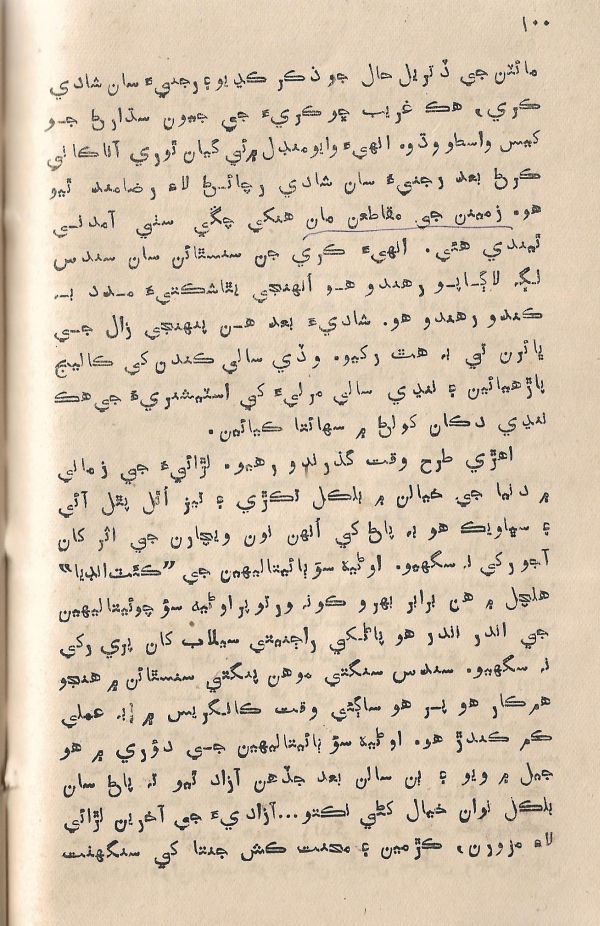 ۱۰۰
مائٽن جي ڏتڙيل حال جو ذڪر ڪديو ۽ رجنيءَ سان شادي
ڪري، هڪ غريب ڇوڪريءَ جي جيون سڌارڻ جو
کيس واسطو وڌو. انهيءَ وايو منڊل ۾ ئي گيان ٿوري آناڪاني
ڪرڻ بعد رجنيءَ سان شادي رچائڻ لاءِ رضامند ٿيو
هو. زمينن جي مقاطعن مان هنکي چڱي سٺي آمدني
ٿيندي هئي. انهيءَ ڪري جن سنسٿائن سان سندس
لڳ لاڳاپو رهندو هو انهنجي يٿاشڪتيءَ مدد بہ
ڪندو رهندو هو. شاديءَ بعد هن پنهنجي زال جي
ڀائرن تي بہ هٿ رکيو. وڏي سالي ڪندن کي ڪاليج
پاڙهيائين ۽ ننڍي سالي مرليءَ کي اسٽيشنريءَ جي هڪ
ننڍي دڪان کولڻ ۾ سهائتا ڪيائين.
اهڙي طرح وقت گذرندو رهيو. لڙائيءَ جي زماني
۾ دنيا جي خيالن ۾ بلڪل تڪڙي ۽ تيز اُٿل پٿل آئي
۽ سڀاويڪ هو تہ پاڻ کي اُنهن نون ويچارن جي اثر کان
آجو رکي نہ سگهيو. اوڻيهہ سؤ ٻائيتاليهين جي ”ڪئٽ انڊيا“
هلچل ۾ هن برابر بهرو ڪونہ ورتو پر اوڻيهہ سؤ چوئيتاليهين
جي اندر اندر هو پاڻکي راجنيتي سيلاب کان پري رکي
نہ سگهيو. سندس سنگتي موهن پنگتي سنسٿائن ۾ هنجو
همڪار هو پر هو ساڳئي وقت ڪانگريس ۾ بہ عملي
ڪم ڪندڙ هو. اوڻيهہ سؤ ٻائيتاليهين جي دؤري ۾ هو
جيل ۾ ويو ۽ ٻن سالن بعد جڏهن آزاد ٿيو تہ پاڻ سان
بلڪل نوان خيال کڻي نڪتو...آزاديءَ جي آخرين لڙائي
لاءِ مزورن، ڪڙمين ۽ محنت ڪش جنتا کي سنگهٺت